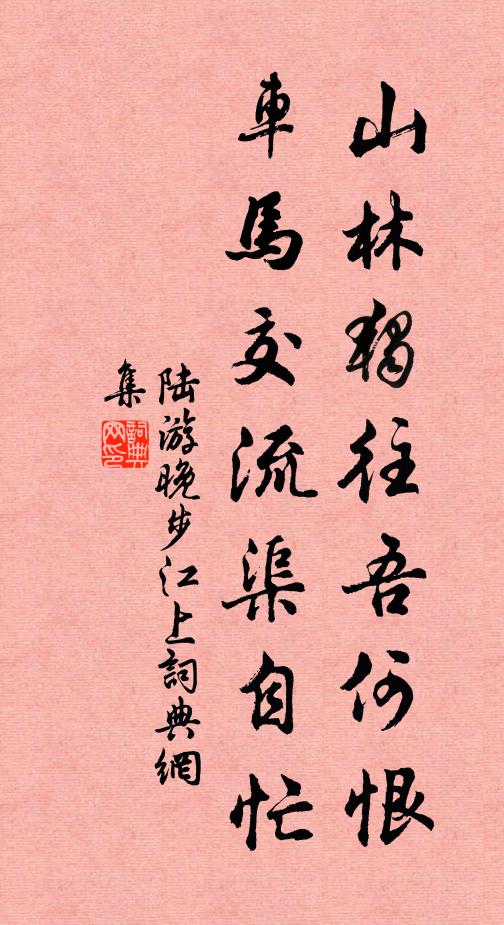 山林獨往吾何恨
車馬交流渠自忙
陆游晚步江上詞典網
集
詞典
网印